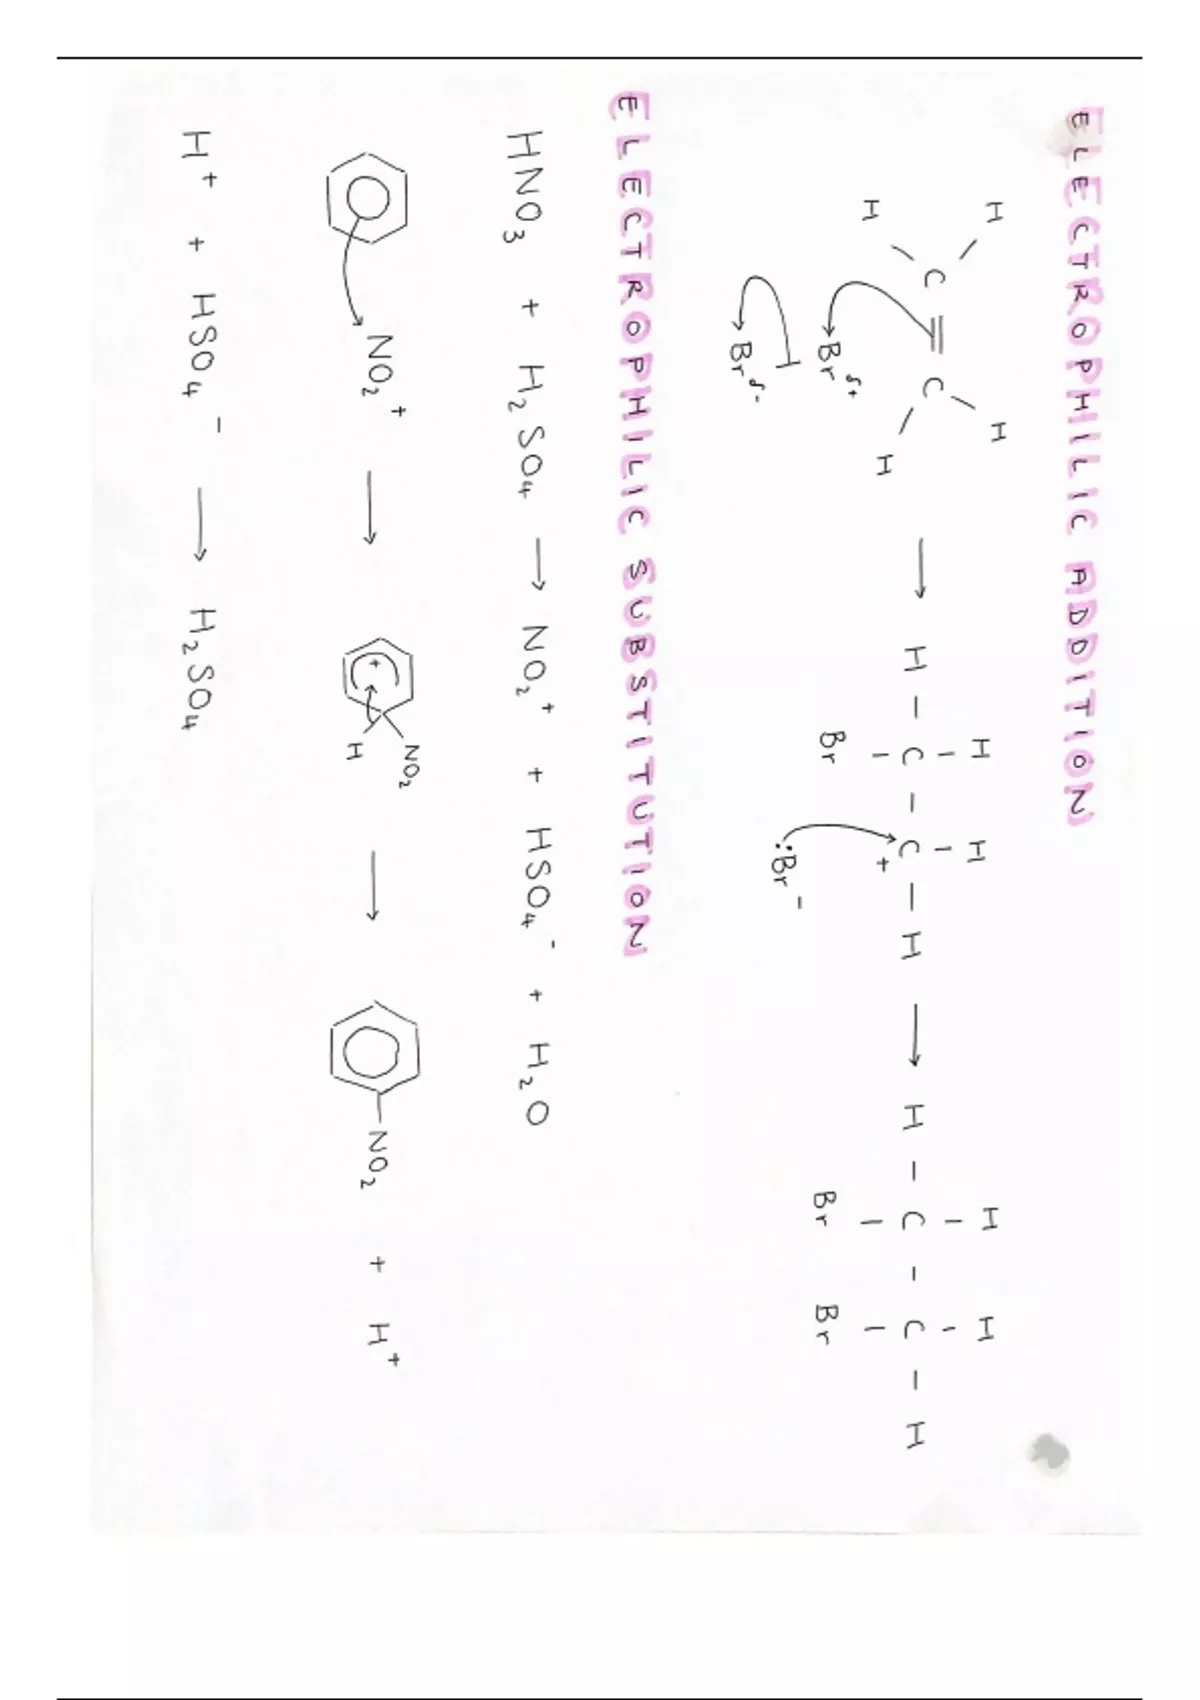 ELECTROPHILIC ADDITION
H H H H H H
C = C → H - C - C - H → H - C - C - H
H H Br + Br Br
Br δ+ :Br -
Br δ-
ELECTROPHILIC SUBSTITUTION
HNO3 + H2SO4 → NO2+ + HSO4- + H2O
NO2+ → + NO2 H → NO2 + H+
H+ + HSO4- → H2SO4